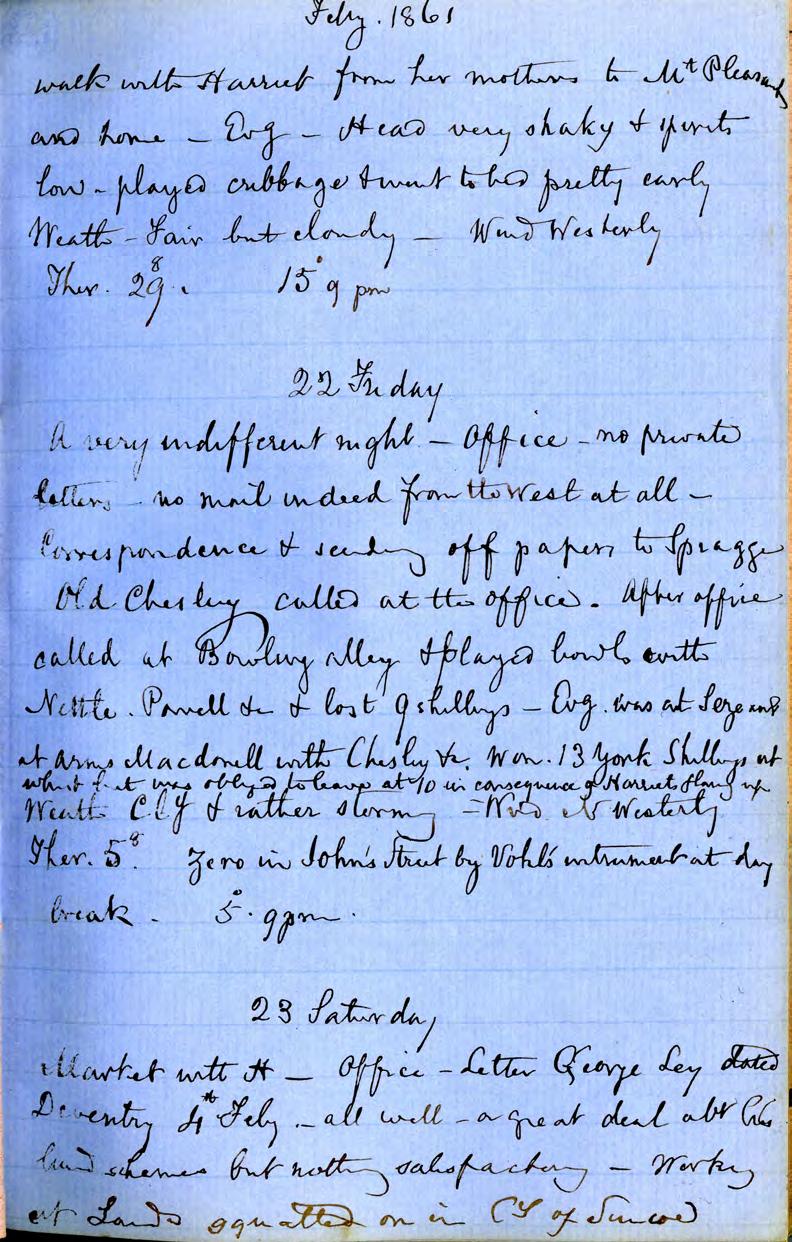 Feby. 1861
walk with Harriet from her mothers to Mt Pleasant
and home – Evg – Head very shaky & spirits
low – played cribbage & went to bed pretty early
Weath – Fair but cloudy – Wind Westerly
Ther. 29. 8 15° 9 pm
22 Friday
A very indifferent night – Office – no private
letters – no mail indeed from the West at all –
Correspondence & sending off papers to Spragge
Old Chesley called at the office. After office
called at Bowling alley & played bowls with
Nettle. Powell &c & lost 9 shillings – Evg. was at Sergeant
at Arms Macdonell with Chesley &c. Won. 13 York Shillings at
whist but was obliged to leave at 10 in consequence of Harriets up
Weath Cly & rather stormy – Wind N Westerly
Ther. 5. 8 Zero in John's Street by Vohl's instrument at day
break – 5° 9 pm.
23 Saturday
Market with H – Office – Letter George Ley dated
Daventry 4th Feby – all well – a great deal abt his
land schemes but nothing satisfactory – Working
at Lands squatted on in Cy of Simcoe